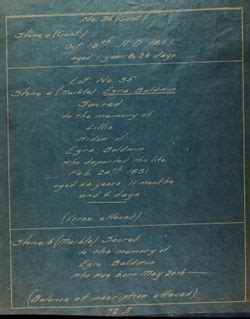 No. 36 (Cont.)
Stone a (Cont.)
Oct 18th A.D. 1851
aged 1 year & 26 days
Lot No. 35
Stone a (Marble) Ezra Baldwin
Sacred
to the memory of
Lillis
Widow of
Ezra Baldwin
who departed this life
Feb. 20th 1831
aged 11 months
and 6 days
(Verse effaced)
Stone b (Marble) Sacred
to the memory of
Ezra Baldwin
who was born May 20th
(Balance of inscription effaced)